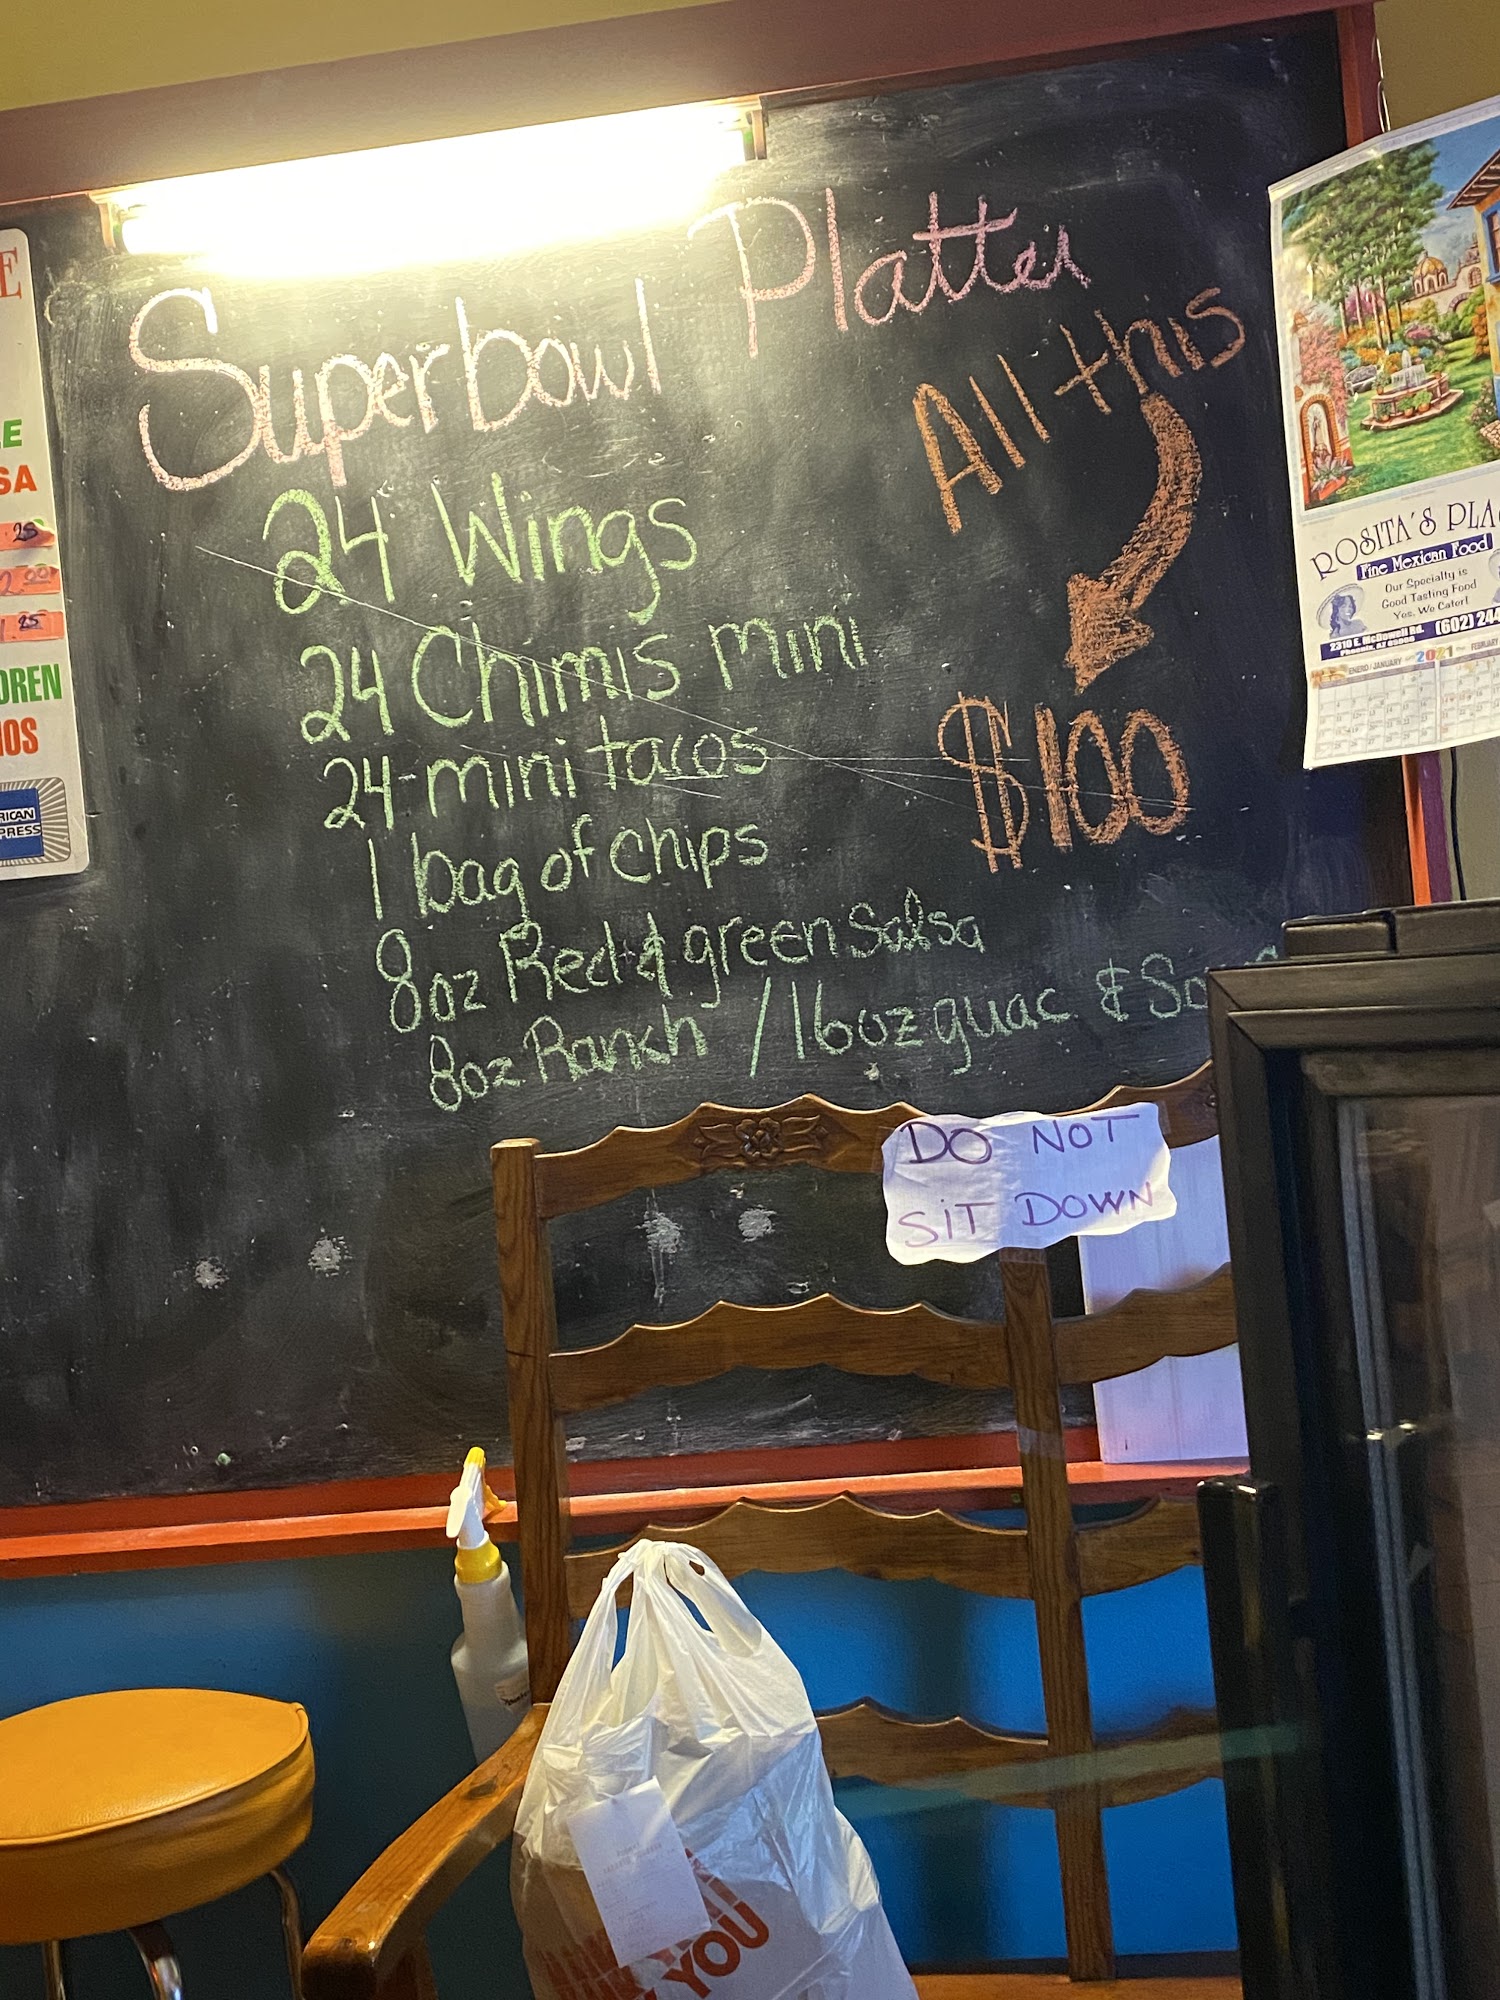 Superbowl Platter
24 Wings
24 Chimis mini
24 mini tacos
1 bag of chips
8oz Red & green Salsa
8oz Ranch / 16oz guac &
All this
$100
DO NOT
SiT DOWN
E
LE
SA
25
2.00
1.25
DREN
IOS
RICAN
PRESS
ROSITA'S PLA
Fine Mexican Food
Our Specialty is
Good Tasting Food
Yes, We Cater!
2310 E. McDowell Rd.
(602) 244
ENERO / JANUARY 2021 FEBRUARY
YOU